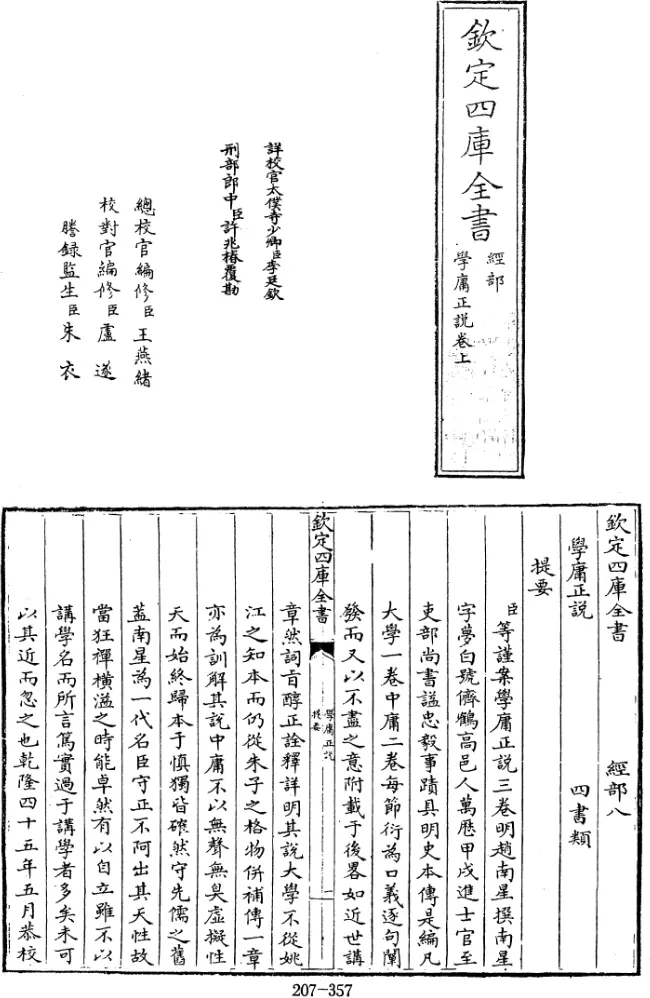 欽定四庫全書
經部
學庸正說卷上
詳校官太僕寺少卿臣李廷欽
刑部郎中臣許兆椿覆勘
總校官編修臣王燕緒
校對官編修臣盧遂
謄錄監生臣朱衣
欽定四庫全書 經部八
學庸正說 四書類
提要
臣等謹案學庸正說三卷明趙南星撰南星
字夢白號儕鶴高邑人萬歷甲戌進士官至
吏部尚書諡忠毅事蹟具明史本傳是編凡
大學一卷中庸二卷每節衍為口義逐句闡
發而又以不盡之意附載于後畧如近世講
欽定四庫全書
學庸正說
提要
一
章然詞旨醇正詮釋詳明其說大學不從姚
江之知本而仍從朱子之格物併補傳一章
亦為訓解其說中庸不以無聲無臭虛擬性
天而始終歸本于慎獨皆確然守先儒之舊
葢南星為一代名臣守正不阿出其天性故
當狂禪橫溢之時能卓然有以自立雖不以
講學名而所言篤實過于講學者多矣未可
以其近而忽之也乾隆四十五年五月恭校
207-357